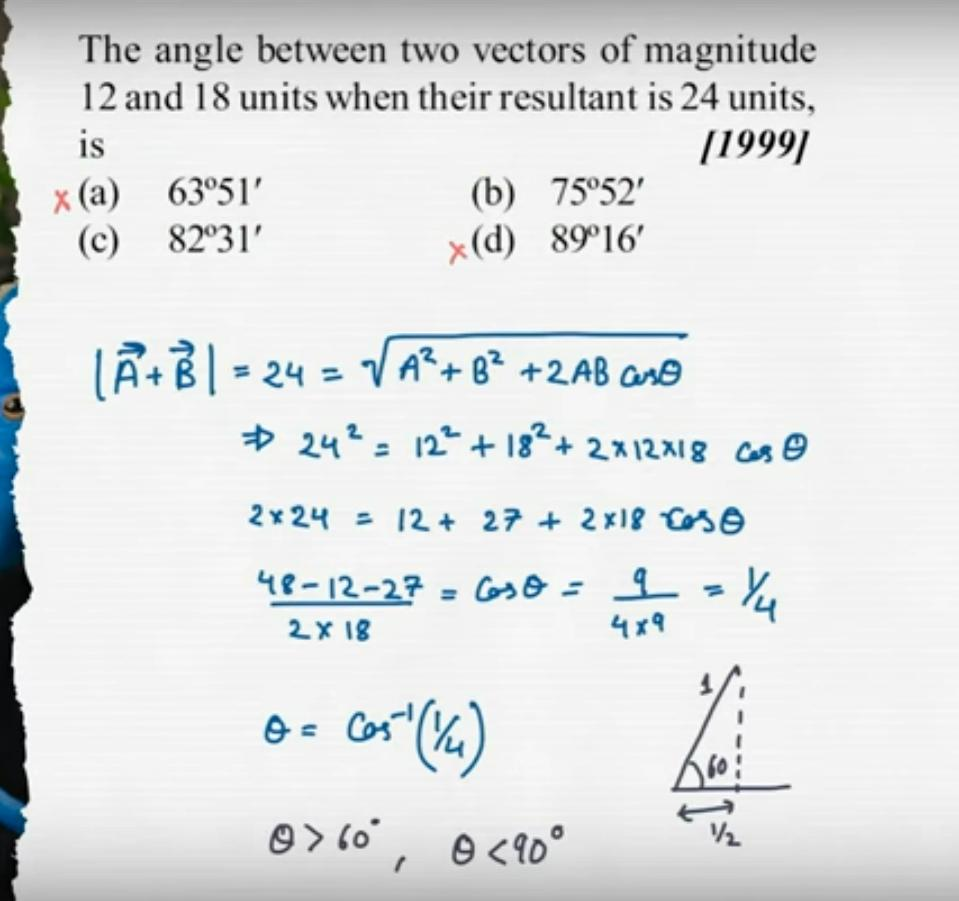 The angle between two vectors of magnitude
12 and 18 units when their resultant is 24 units,
is [1999]
x (a) 63º51′ (b) 75º52′
(c) 82º31′ x (d) 89º16′
|A⃗ + B⃗| = 24 = √(A² + B² + 2AB cosθ)
⇒ 24² = 12² + 18² + 2×12×18 cos θ
2×24 = 12 + 27 + 2×18 cosθ
(48-12-27)/(2×18) = cosθ = 9/(4×9) = 1/4
θ = cos⁻¹(1/4)
1
60
1/2
θ > 60°, θ < 90°